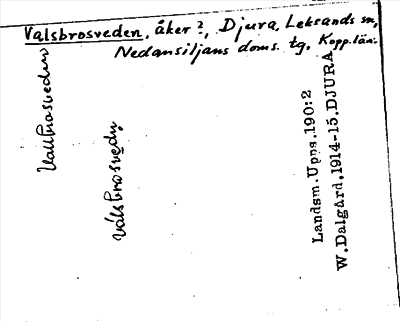 Valsbrosveden, åker?, Djura, Leksands sn,
Nedansiljans doms. tg, Kopp.län.
Vallbrosveden
Válsbrosvedn
Landsm.Upps.190:2
W.Dalgård.1914-15.DJURA